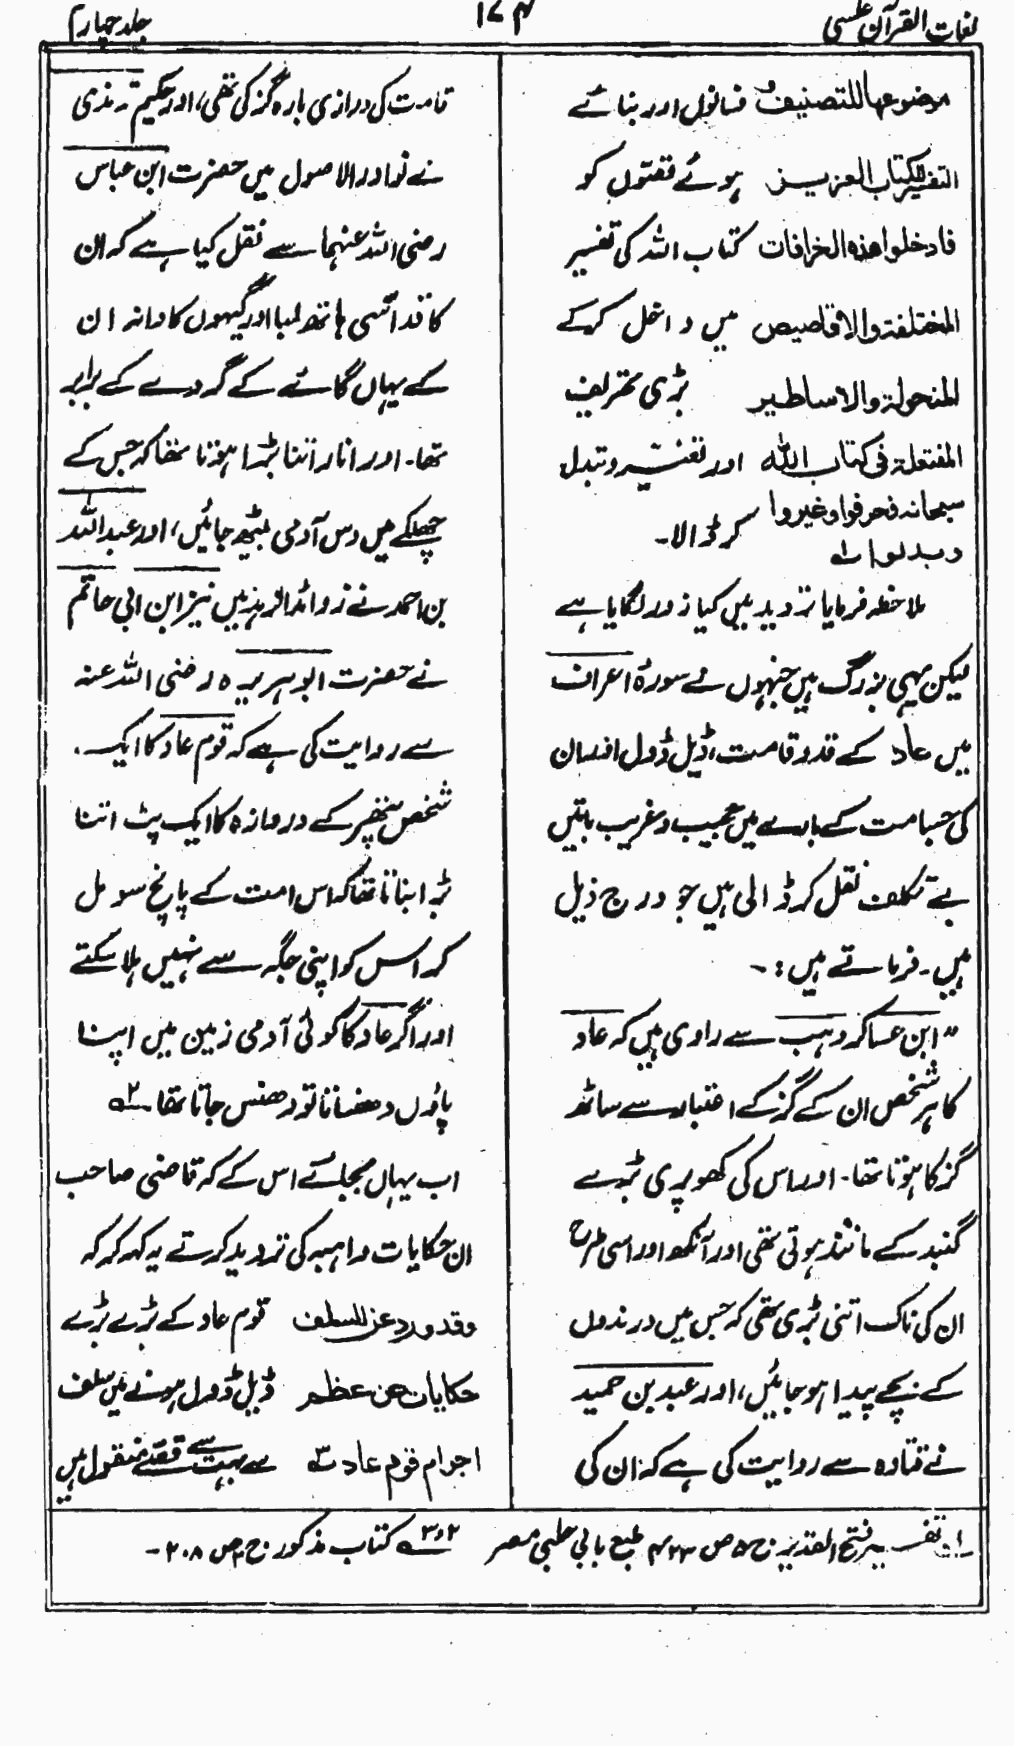 لغات القرآن عسی
۱۷۴
جلد چہارم
موضوعہا للتصنیف فسانوں اور بنائے
التفسیر لکتاب العزیز ہوئے قصّوں کو
فادخلوا ھذہ الخرافات کتاب اللہ کی تفسیر
المختلفۃ والاقاصیص میں داخل کرکے
المنحولۃ والاساطیر بڑی تحریف
المفتعلۃ فی کتاب اللہ اور تغیّر و تبدل
سبحانہ فحرفوا وغیروا کر ڈالا۔
وبدلوا لہ
ملاحظہ فرمایا تردید میں کیا زور لگایا ہے
لیکن یہی بزرگ ہیں جنہوں نے سورۂ اعراف
میں عاد کے قدوقامت، ڈیل ڈول انسان
کی جسامت کے بارے میں عجیب و غریب باتیں
بے تکلف نقل کر ڈالی ہیں جو درج ذیل
ہیں۔ فرماتے ہیں:۔
"ابن عساکر وہب سے راوی ہیں کہ عاد
کا ہر شخص ان کے گز کے اعتبار سے ساٹھ
گز کا ہوتا تھا۔ اور اس کی کھوپری بڑے
گنبد کے مانند ہوتی تھی اور آنکھ اور اسی طرح
ان کی ناک اتنی بڑی تھی کہ جس میں درندوں
کے بچے پیدا ہوجائیں، اور عبد بن حمید
نے قتادہ سے روایت کی ہے کہ ان کی
قامت کی درازی بارہ گز کی تھی، اور حکیم ترمذی
نے نوادر الاصول میں حضرت ابن عباس
رضی اللہ عنہما سے نقل کیا ہے کہ ان
کا قد اَسّی ہاتھ لمبا اور گیہوں کا دانہ ان
کے یہاں گائے کے گردے کے برابر
تھا۔ اور انار اتنا بڑا ہوتا تھا کہ جس کے
چھلکے میں دس آدمی بیٹھ جائیں، اور عبد اللہ
بن احمد نے زوائد الزہد میں نیز ابن ابی حاتم
نے حضرت ابوہریرہ رضی اللہ عنہ
سے روایت کی ہے کہ قوم عاد کا ایک
شخص پتھر کے دروازہ کا ایک پٹ اتنا
بڑا بناتا تھا کہ اس امت کے پانچ سو مل
کر اس کو اپنی جگہ سے نہیں ہلا سکتے
اور اگر عاد کا کوئی آدمی زمین میں اپنا
پاؤں دھنساتا تو دھنس جاتا تھا ۲ہ
اب یہاں بجائے اس کے کہ قاضی صاحب
ان حکایات واہیہ کی تردید کرتے یہ کہہ کر کہ
وقد ورد عن السلف قوم عاد کے بڑے بڑے
حکایات عن عظم ڈیل ڈول ہونے میں سلف
اجرام قوم عاد ۳ہ سے بہت سے قصّے منقول ہیں
۱ہ تفسیر فتح القدیر ج ۵ ص ۴۲۳ طبع بابی حلبی مصر ۲ و ۳ہ کتاب مذکور ج ۲ ص ۲۰۸۔